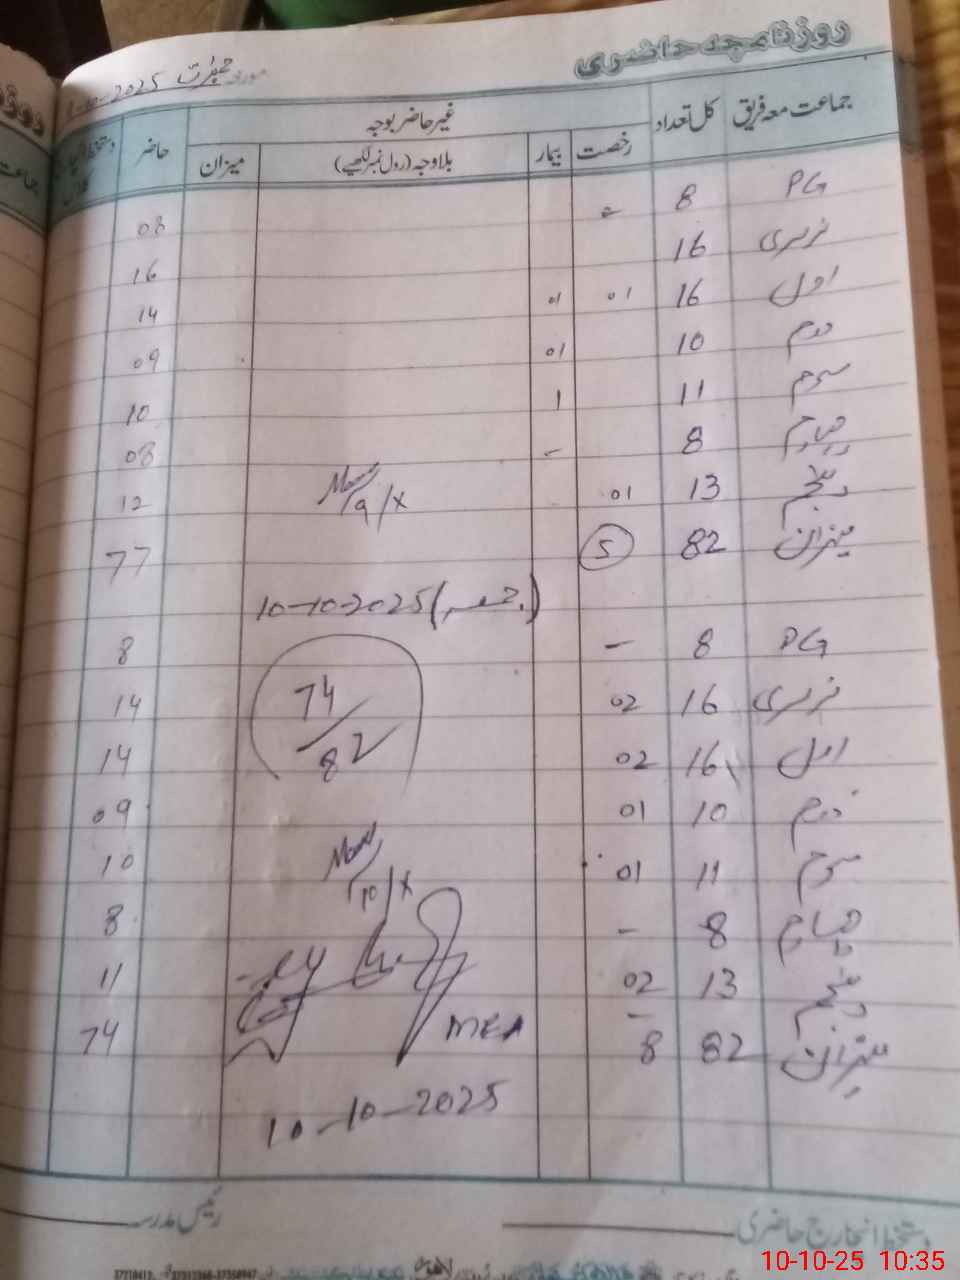 روزنامچہ حاضری
مورخہ جمعرات 2025-10-
جماعت معہ فریق کل تعداد غیر حاضر بوجہ حاضر
رخصت بیمار بلاوجہ (رول نمبر لکھیے) میزان
PG 8 - 08
نرسری 16 16
اول 16 01 01 14
دوم 10 01 09
سوم 11 1 10
چہارم 8 - 08
پنجم 13 01 12
9/X
میزان 82 5 77
10-10-2025 (جمعہ)
PG 8 - 8
نرسری 16 02 14
74/82
اول 16 02 14
دوم 10 01 09
سوم 11 01 10
10/X
چہارم 8 - 8
پنجم 13 02 11
MEA
میزان 82 8 74
10-10-2025
دستخط انچارج حاضری رئیس مدرسہ
لاہور
10-10-25 10:35